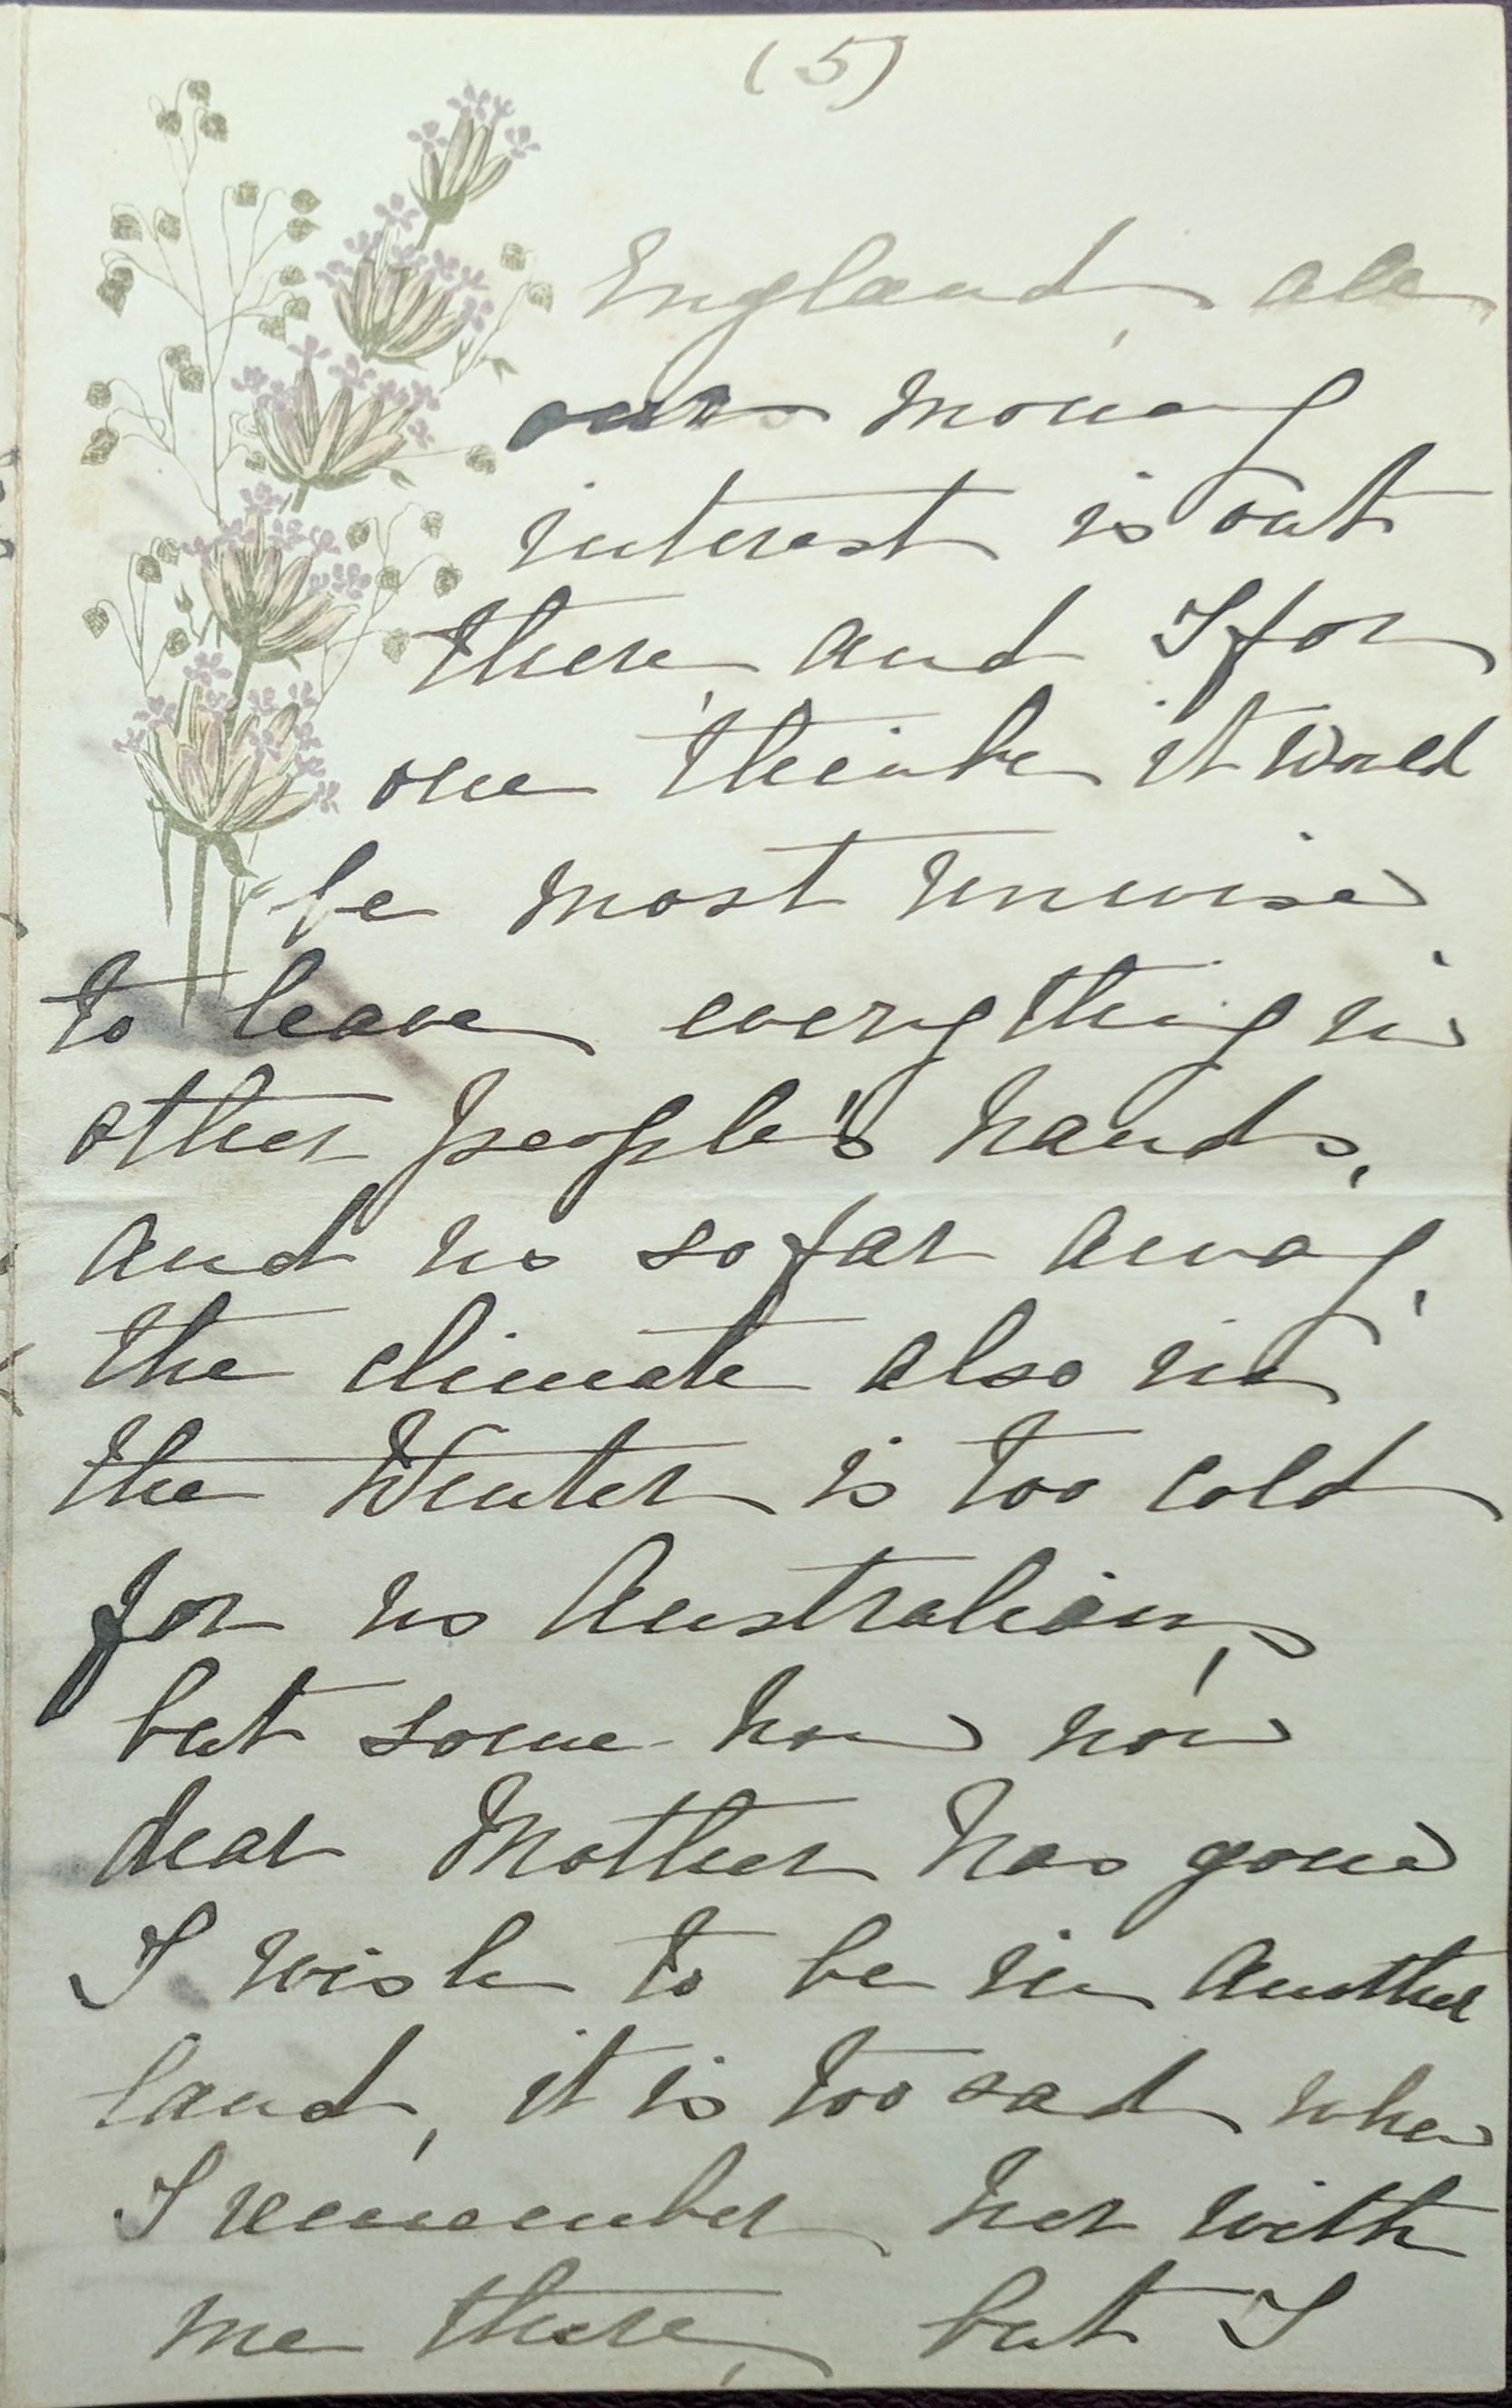 (5)
England, all
our money
interest is out
there, and I for
one think it would
be most unwise
to leave everything in
other people's hands,
and us so far away,
the climate also in
the Winter is too cold
for us Australians,
but some-how now
dear Mother has gone
I wish to be in another
land, it is too sad when
I remember her with
me there, but I